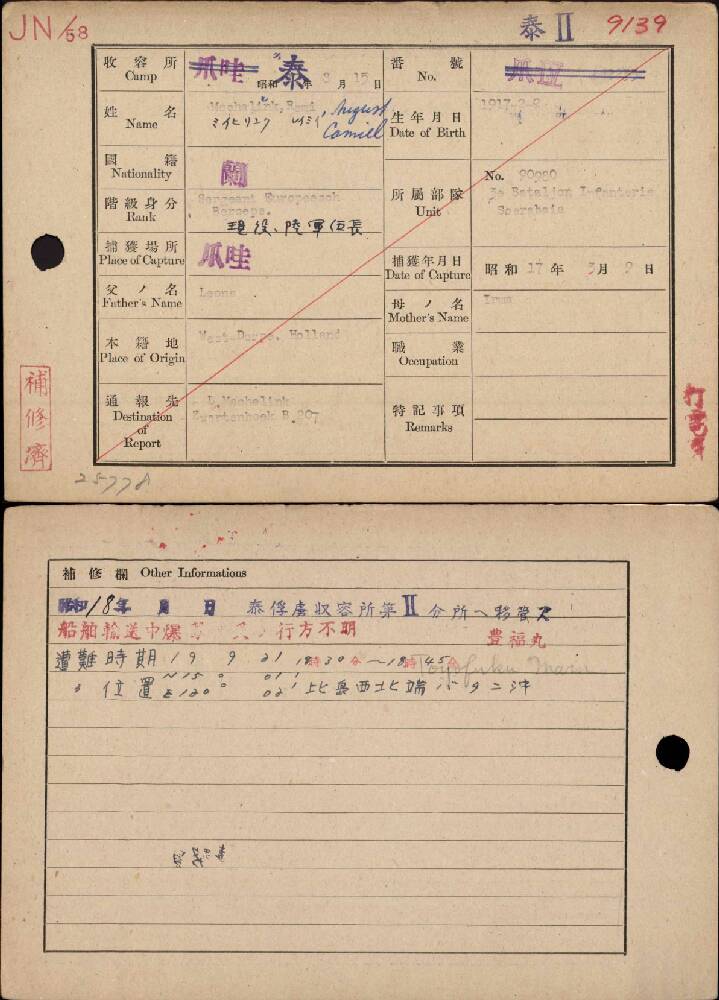 JN/58
泰 II 9139
收容所 Camp 爪哇 泰 昭和 年 8 月 15 日
番號 No. 爪哇
姓名 Name Mechelink, Remi August Camiel
生年月日 Date of Birth 1917.2.8
國籍 Nationality 蘭
階級身分 Rank Sergeant Europeesch Beroeps.
現役、陸軍伍長
所屬部隊 Unit No. 90920
3e Bataljon Infanterie
Soerabaia
捕獲場所 Place of Capture 爪哇
捕獲年月日 Date of Capture 昭和 17 年 3月 9 日
父ノ名 Father's Name Leons
母ノ名 Mother's Name Irma
本籍地 Place of Origin West-Dorpe. Holland
職業 Occupation
通報先 Destination of Report L Mechelink
Zwartenhoek B.207
特記事項 Remarks
補修濟
25778
補修欄 Other Informations
昭和18年 月 日 泰俘虜収容所第II分所ヘ移管ス
船舶輸送中爆 行方不明 豊福丸
遭難時期 19 9 21 10時30分〜18時45分 Toyofuku Maru
〃 位置 N 15° 01' E 120° 02' 比島西北端バタニ沖